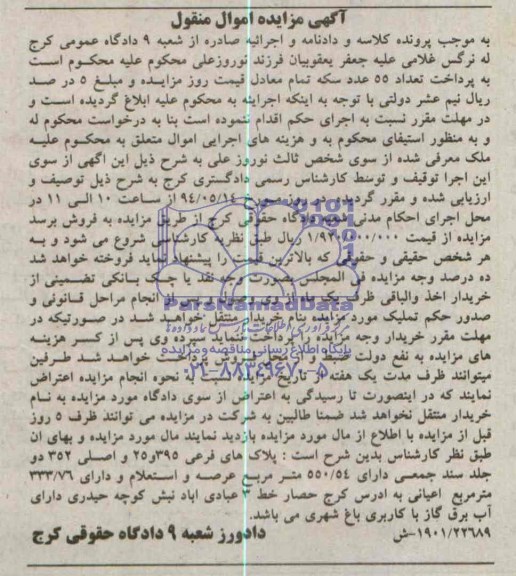 آگهی مزایده اموال منقول
به موجب پرونده کلاسه و دادنامه و اجرائیه صادره از شعبه ۹ دادگاه عمومی کرج
له نرگس غلامی علیه جعفر یعقوبیان فرزند نوروزعلی محکوم علیه محکوم است
به پرداخت تعداد ۵۵ عدد سکه تمام معادل قیمت روز مزایده و مبلغ ۵ در صد
ریال نیم عشر دولتی با توجه به اینکه اجرائیه به محکوم علیه ابلاغ گردیده است و
در مهلت مقرر نسبت به اجرای حکم اقدام ننموده است بنا به درخواست محکوم له
و به منظور استیفای محکوم به و هزینه های اجرایی اموال متعلق به محکوم علیه
ملک معرفی شده از سوی شخص ثالث نوروز علی به شرح ذیل این اگهی از سوی
این اجرا توقیف و توسط کارشناس رسمی دادگستری کرج به شرح ذیل توصیف و
ارزیابی شده و مقرر گردیده در روز مورخ ۹۴/۰۵/۱۴ از ساعت ۱۰ الی ۱۱ در
محل اجرای احکام مدنی شعبه دادگاه حقوقی کرج از طریق مزایده به فروش برسد
مزایده از قیمت ریال طبق نظریه کارشناسی شروع می شود و به
هر شخص حقیقی و حقوقی که بالاترین قیمت را پیشنهاد نماید فروخته خواهد شد
ده درصد وجه مزایده فی المجلس بصورت وجه نقد یا چک بانکی تضمینی از
خریدار اخذ والباقی ظرف یک ماه از وی وصول و پس از انجام مراحل قانونی و
صدور حکم تملیک مورد مزایده بنام خریدار منتقل خواهد شد در صورتیکه در
مهلت مقرر خریدار وجه مزایده را پرداخت ننماید سپرده وی پس از کسر هزینه
های مزایده به نفع دولت ضبط خواهد شد طرفین
میتوانند ظرف مدت یک هفته از تاریخ مزایده نسبت به نحوه انجام مزایده اعتراض
نمایند که در اینصورت تا رسیدگی به اعتراض از سوی دادگاه مورد مزایده به نام
خریدار منتقل نخواهد شد ضمنا طالبین به شرکت در مزایده می توانند ظرف ۵ روز
قبل از مزایده با اطلاع از مال مورد مزایده بازدید نمایند مال مورد مزایده و بهای ان
طبق نظر کارشناس بدین شرح است : پلاک های فرعی ۳۹۵و۲۵ و اصلی ۳۵۲ دو
جلد سند جمعی دارای ۵۵۰/۵۴ متر مربع عرصه و استعلام و دارای ۳۳۳/۷۶
مترمربع اعیانی به ادرس کرج حصار خط ۳ عبادی اباد نبش کوچه حیدری دارای
آب برق گاز با کاربری باغ شهری می باشد.
۱۹۰۱/۲۲۶۸۹-ش دادورز شعبه ۹ دادگاه حقوقی کرج
ParsNamadData
پایگاه اطلاع رسانی مناقصه و مزایده
۰۲۱-۸۸۳۴۹۶۷۰-۵